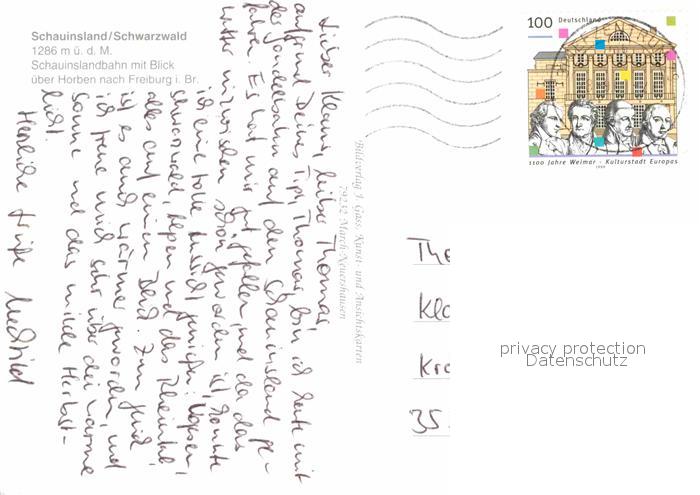 Schauinsland/Schwarzwald
1286 m ü. d. M.
Schauinslandbahn mit Blick
über Horben nach Freiburg i. Br.
Lieber Klaus, lieber Thomas,
aufgrund Deines Tips, Thomas, bin ich heute mit
der Gondelbahn auf den Schauinsland ge-
fahren. Es hat mir gut gefallen, und da das
Wetter inzwischen schön geworden ist, konnte
ich eine tolle Aussicht genießen: Vogesen,
Schwarzwald, Alpen und das Rheintal,
alles auf einen Blick. Zum Glück
ist es auch wärmer geworden, und
ich freue mich sehr über die Wärme
Sonne und das milde Herbst-
licht.
Herzliche Grüße
Bildverlag J. Gass, Kunst- und Ansichtskarten
79232 March-Neuershausen
100 Deutschland
1100 Jahre Weimar - Kulturstadt Europas
1999
Tho
Kla
Kro
35
privacy protection
Datenschutz